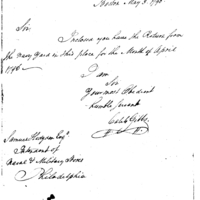 Boston May 3. 1798
Sir.
I inclose you have the Return from
the Navy Yard in this place for the Month of April
1798
I am
Sir
Your most Obedient
Humble Servant
Caleb Gibbs
Samuel Hodgdon Esqr
Intendant of
Naval & Military Stores
Philadelphia